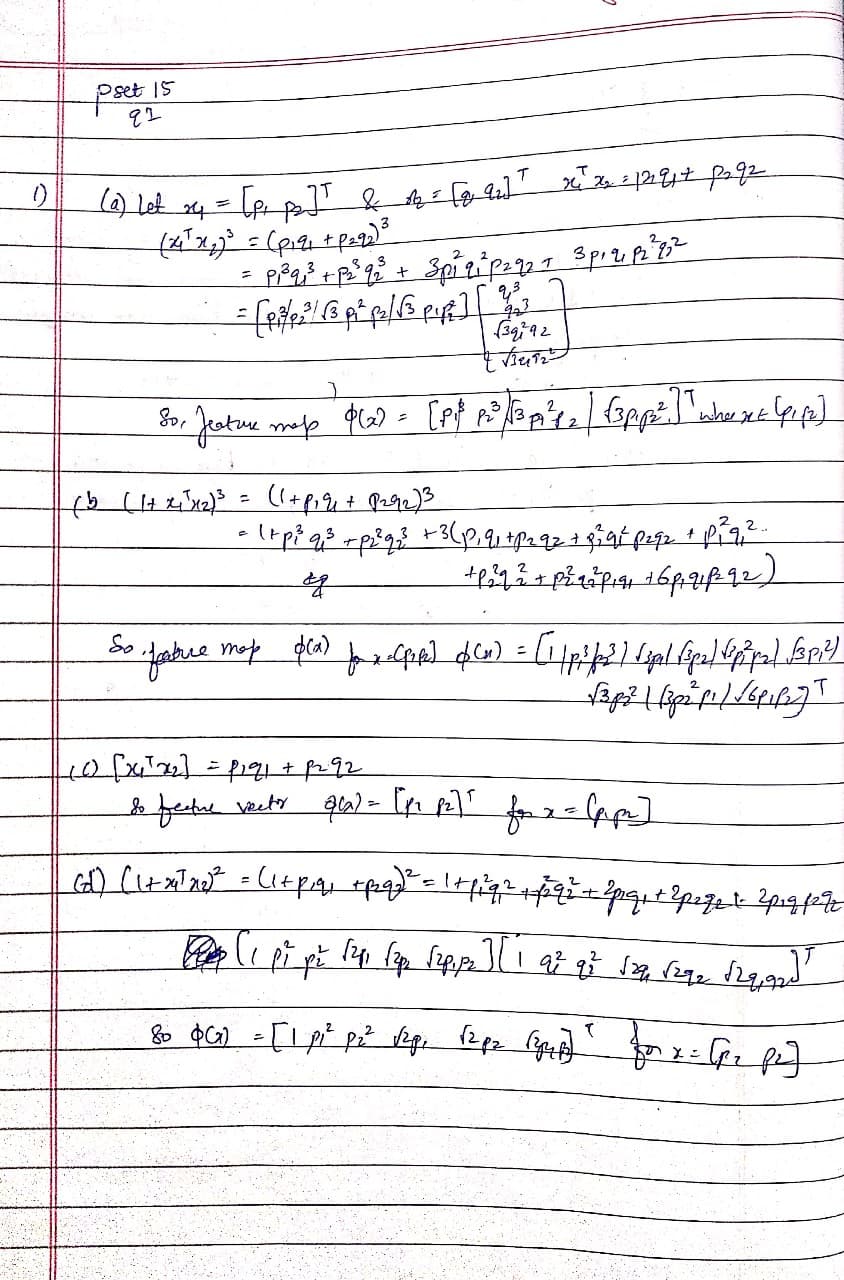 pset 15
q1
1)
(a) Let x₁ = [p₁ p₂]ᵀ & x₂ = [q₁ q₂]ᵀ x₁ᵀx₂ = p₁q₁ + p₂q₂
(x₁ᵀx₂)³ = (p₁q₁ + p₂q₂)³
= p₁³q₁³ + p₂³q₂³ + 3p₁²q₁²p₂q₂ + 3p₁q₁p₂²q₂²
= [p₁³/p₂³/√3 p₁²p₂/√3 p₁p₂²] [q₁³
q₂³
√3q₁²q₂
√3q₁q₂²]
So, feature map ϕ(x) = [p₁³ p₂³/√3 p₁²p₂ / √3p₁p₂²]ᵀ where x ∈ [p₁p₂]
(b (1 + x₁ᵀx₂)³ = (1 + p₁q₁ + p₂q₂)³
= 1 + p₁³q₁³ + p₂³q₂³ + 3(p₁q₁ + p₂q₂ + p₁²q₁²p₂q₂ + p₁²q₁²
+ p₂²q₂² + p₂²q₂²p₁q₁ + 6p₁q₁p₂q₂)
So feature map ϕ(x) for x=[p₁p₂] ϕ(x) = [1/p₁³/p₂³/√3p₁/√3p₂/√3p₁²p₂/√3p₁²/
√3p₂²/√3p₂²p₁/√6p₁p₂]ᵀ
(c) [x₁ᵀx₂] = p₁q₁ + p₂q₂
So feature vector ϕ(x) = [p₁ p₂]ᵀ for x = [p₁p₂]
(d) (1 + x₁ᵀx₂)² = (1 + p₁q₁ + p₂q₂)² = 1 + p₁²q₁² + p₂²q₂² + 2p₁q₁ + 2p₂q₂ + 2p₁q₁p₂q₂
[1 p₁² p₂² √2p₁ √2p₂ √2p₁p₂][1 q₁² q₂² √2q₁ √2q₂ √2q₁q₂]ᵀ
So ϕ(x) = [1 p₁² p₂² √2p₁ √2p₂ √2p₁p₂]ᵀ for x = [p₁ p₂]